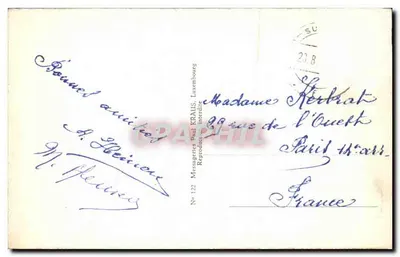 Bonnes amitiés
A. Heinen
M. Heinen
Nº 122 Messageries Paul KRAUS, Luxembourg
Reproduction interdite
23.8
Madame Kerbrat
29 rue de l'Ouest
Paris 14e arr.
France